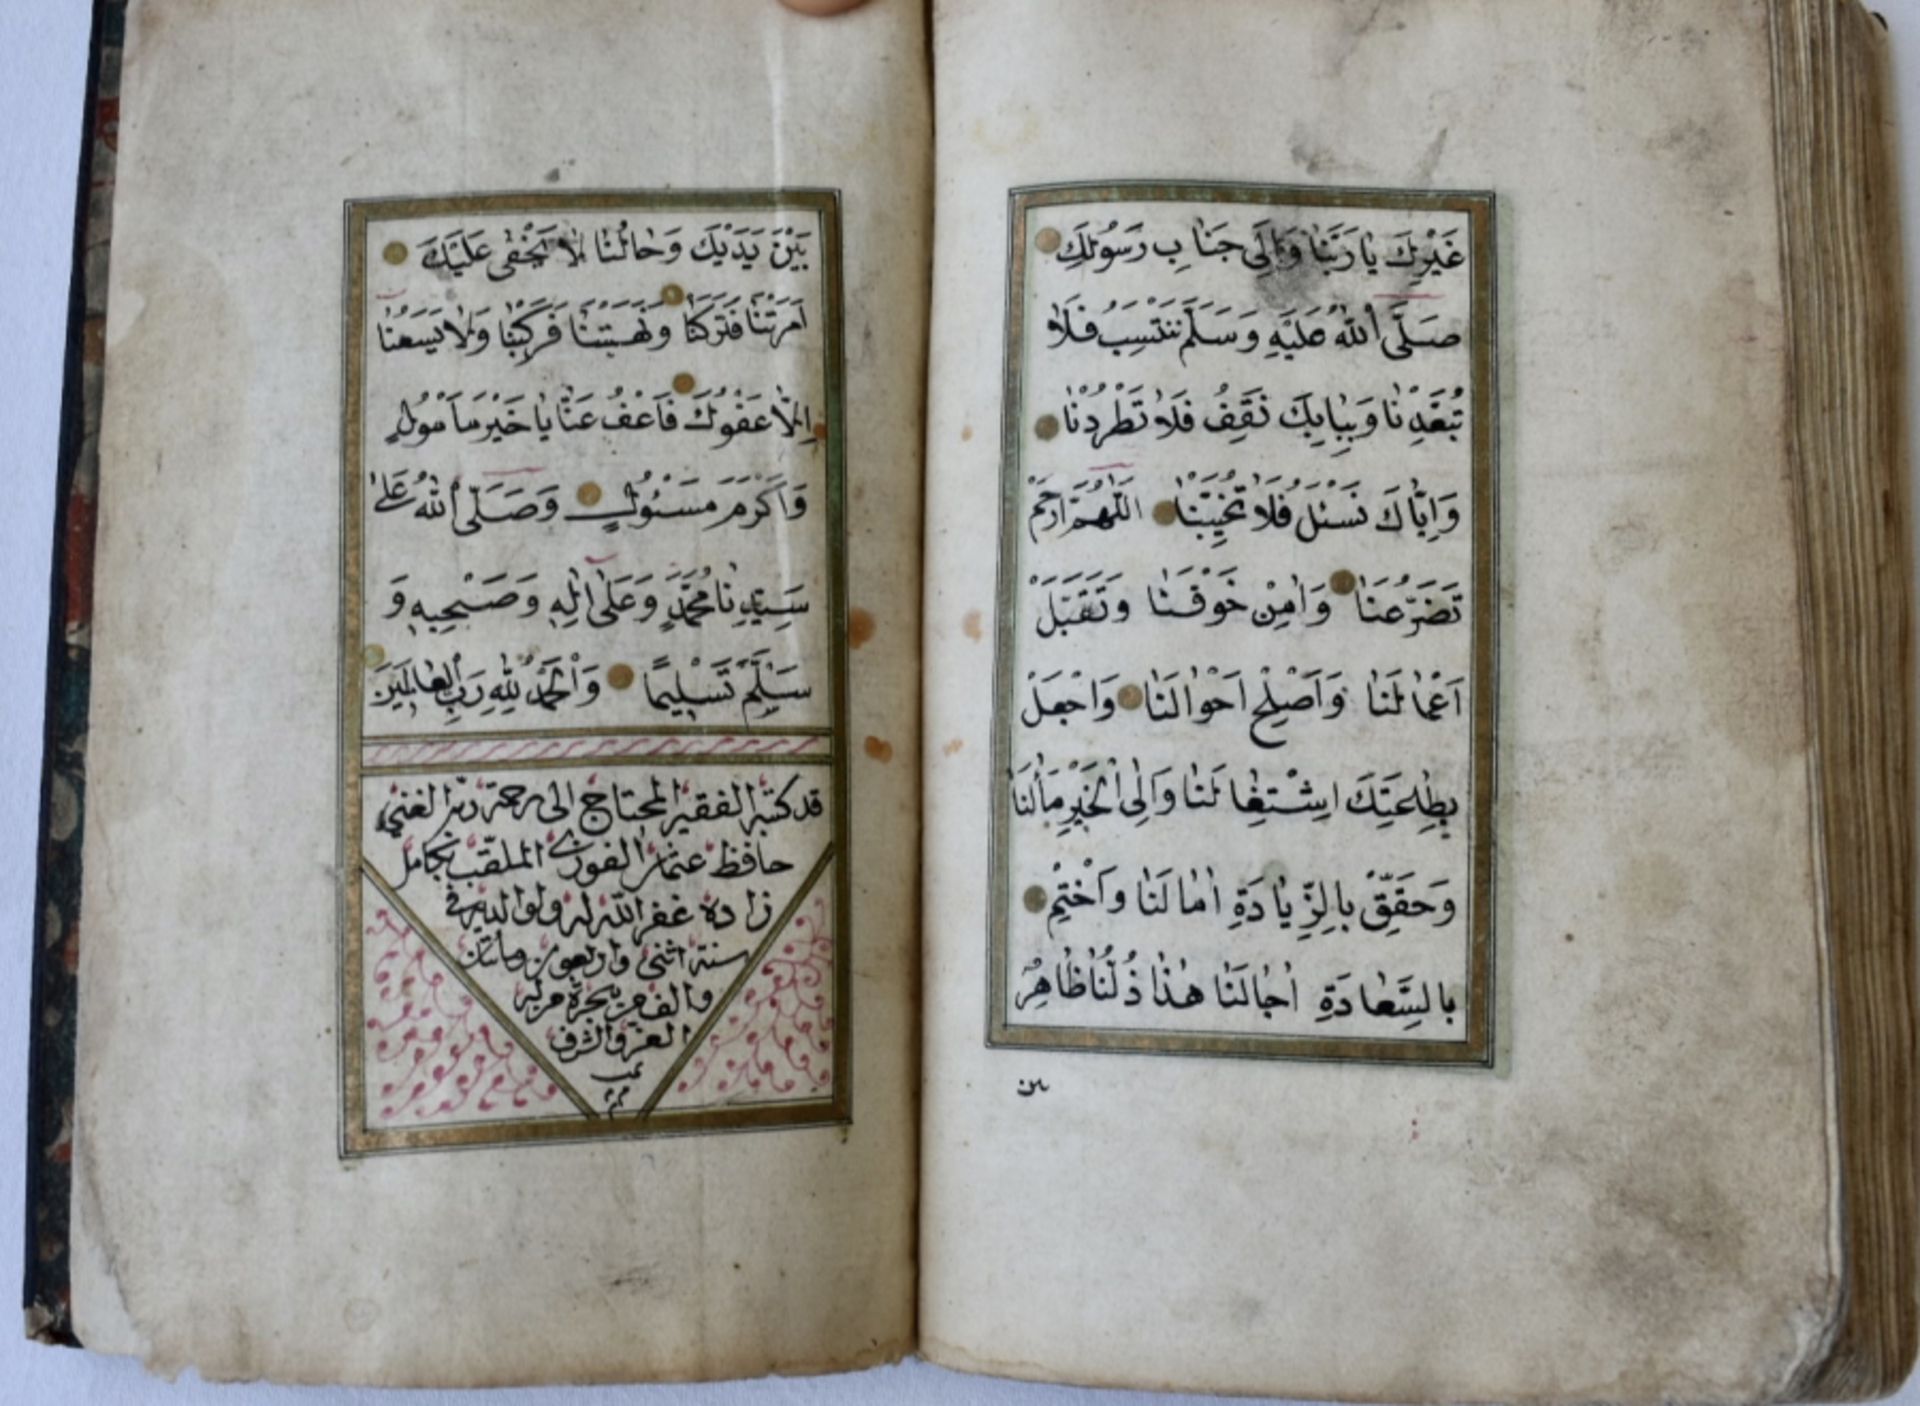 غَيْرِكَ يَا رَبَّنَا وَإِلَى جَنَابِ رَسُولِكَ
صَلَّى اللهُ عَلَيْهِ وَسَلَّمَ نَنْتَسِبُ فَلَا
تُبَعِّدْنَا وَبِبَابِكَ نَقِفُ فَلَا تَطْرُدْنَا
وَاِيَّاكَ نَسْئَلُ فَلَا تُخَيِّبْنَا اَللّٰهُمَّ ارْحَمْ
تَضَرُّعَنَا وَاٰمِنْ خَوْفَنَا وَتَقَبَّلْ
اَعْمَالَنَا وَاَصْلِحْ اَحْوَالَنَا وَاجْعَلْ
بِطَاعَتِكَ اِشْتِغَالَنَا وَاِلَى الْخَيْرِ مَاٰلَنَا
وَحَقِّقْ بِالزِّيَادَةِ اٰمَالَنَا وَاخْتِمْ
بِالسَّعَادَةِ اٰجَالَنَا هٰذَا ذُلُّنَا ظَاهِرٌ
بين
بَيْنَ يَدَيْكَ وَحَالُنَا لَا يَخْفٰى عَلَيْكَ
اَمَرْتَنَا فَتَرَكْنَا وَنَهَيْتَنَا فَرَكِبْنَا وَلَا يَسَعُنَا
اِلَّا عَفْوُكَ فَاعْفُ عَنَّا يَا خَيْرَ مَاْمُولٍ
وَاَكْرَمَ مَسْئُولٍ وَصَلَّى اللهُ عَلٰى
سَيِّدِنَا مُحَمَّدٍ وَعَلٰى اٰلِهٖ وَصَحْبِهٖ وَ
سَلَّمَ تَسْلِيمًا وَالْحَمْدُ لِلّٰهِ رَبِّ الْعَالَمِينَ
قد كتبه الفقير المحتاج الى رحمة ربه الغنى
حافظ عثمان الفوزى الملقب بكامل
زاده غفر الله له ولوالديه فى
سنة اثنى واربعون ومأتان
والف من هجرة من له
العز والشرف